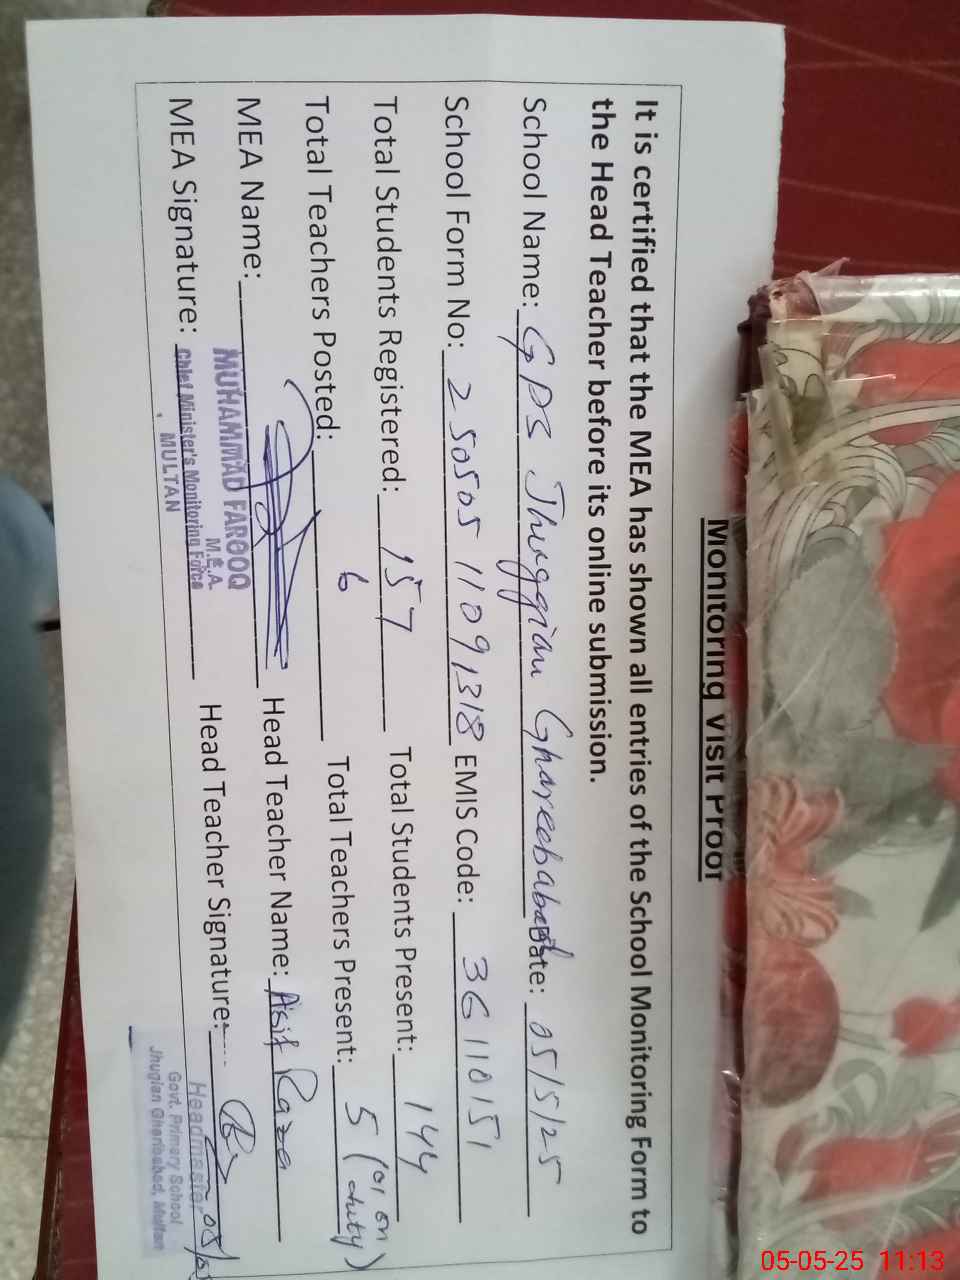 Monitoring Visit Proof
It is certified that the MEA has shown all entries of the School Monitoring Form to
the Head Teacher before its online submission.
School Name: GPS Jhuggian Ghareebabad Date: 05/5/25
School Form No: 25050511091318 EMIS Code: 36110151
Total Students Registered: 157 Total Students Present: 144
Total Teachers Posted: 6 Total Teachers Present: 5 (01 on duty)
MEA Name: Head Teacher Name: Asif Raza
MUHAMMAD FAROOQ
M.E.A.
MEA Signature: Head Teacher Signature:
Chief Minister's Monitoring Force
MULTAN
Headmaster
Govt. Primary School
Jhugian Gharibabad, Multan
05-05-25 11:13